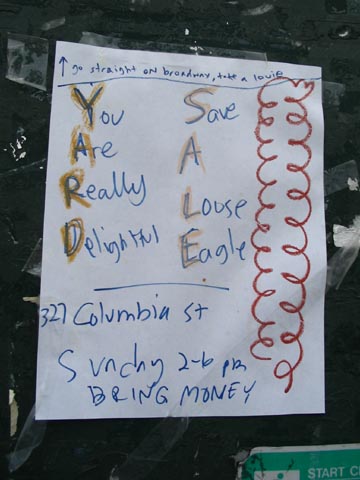 ↑ go straight on broadway, take a louie
You Save
Are A
Really Louse
Delightful Eagle
327 Columbia st
Sunday 2-6 pm
BRING MONEY
START